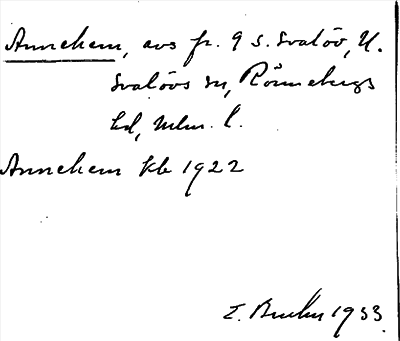 Annehem, avs fr. 9 s. Svalöv, N.
Svalövs sn, Rönnebergs
hd, Mlm. l.
Annehem kb 1922
E. 1933